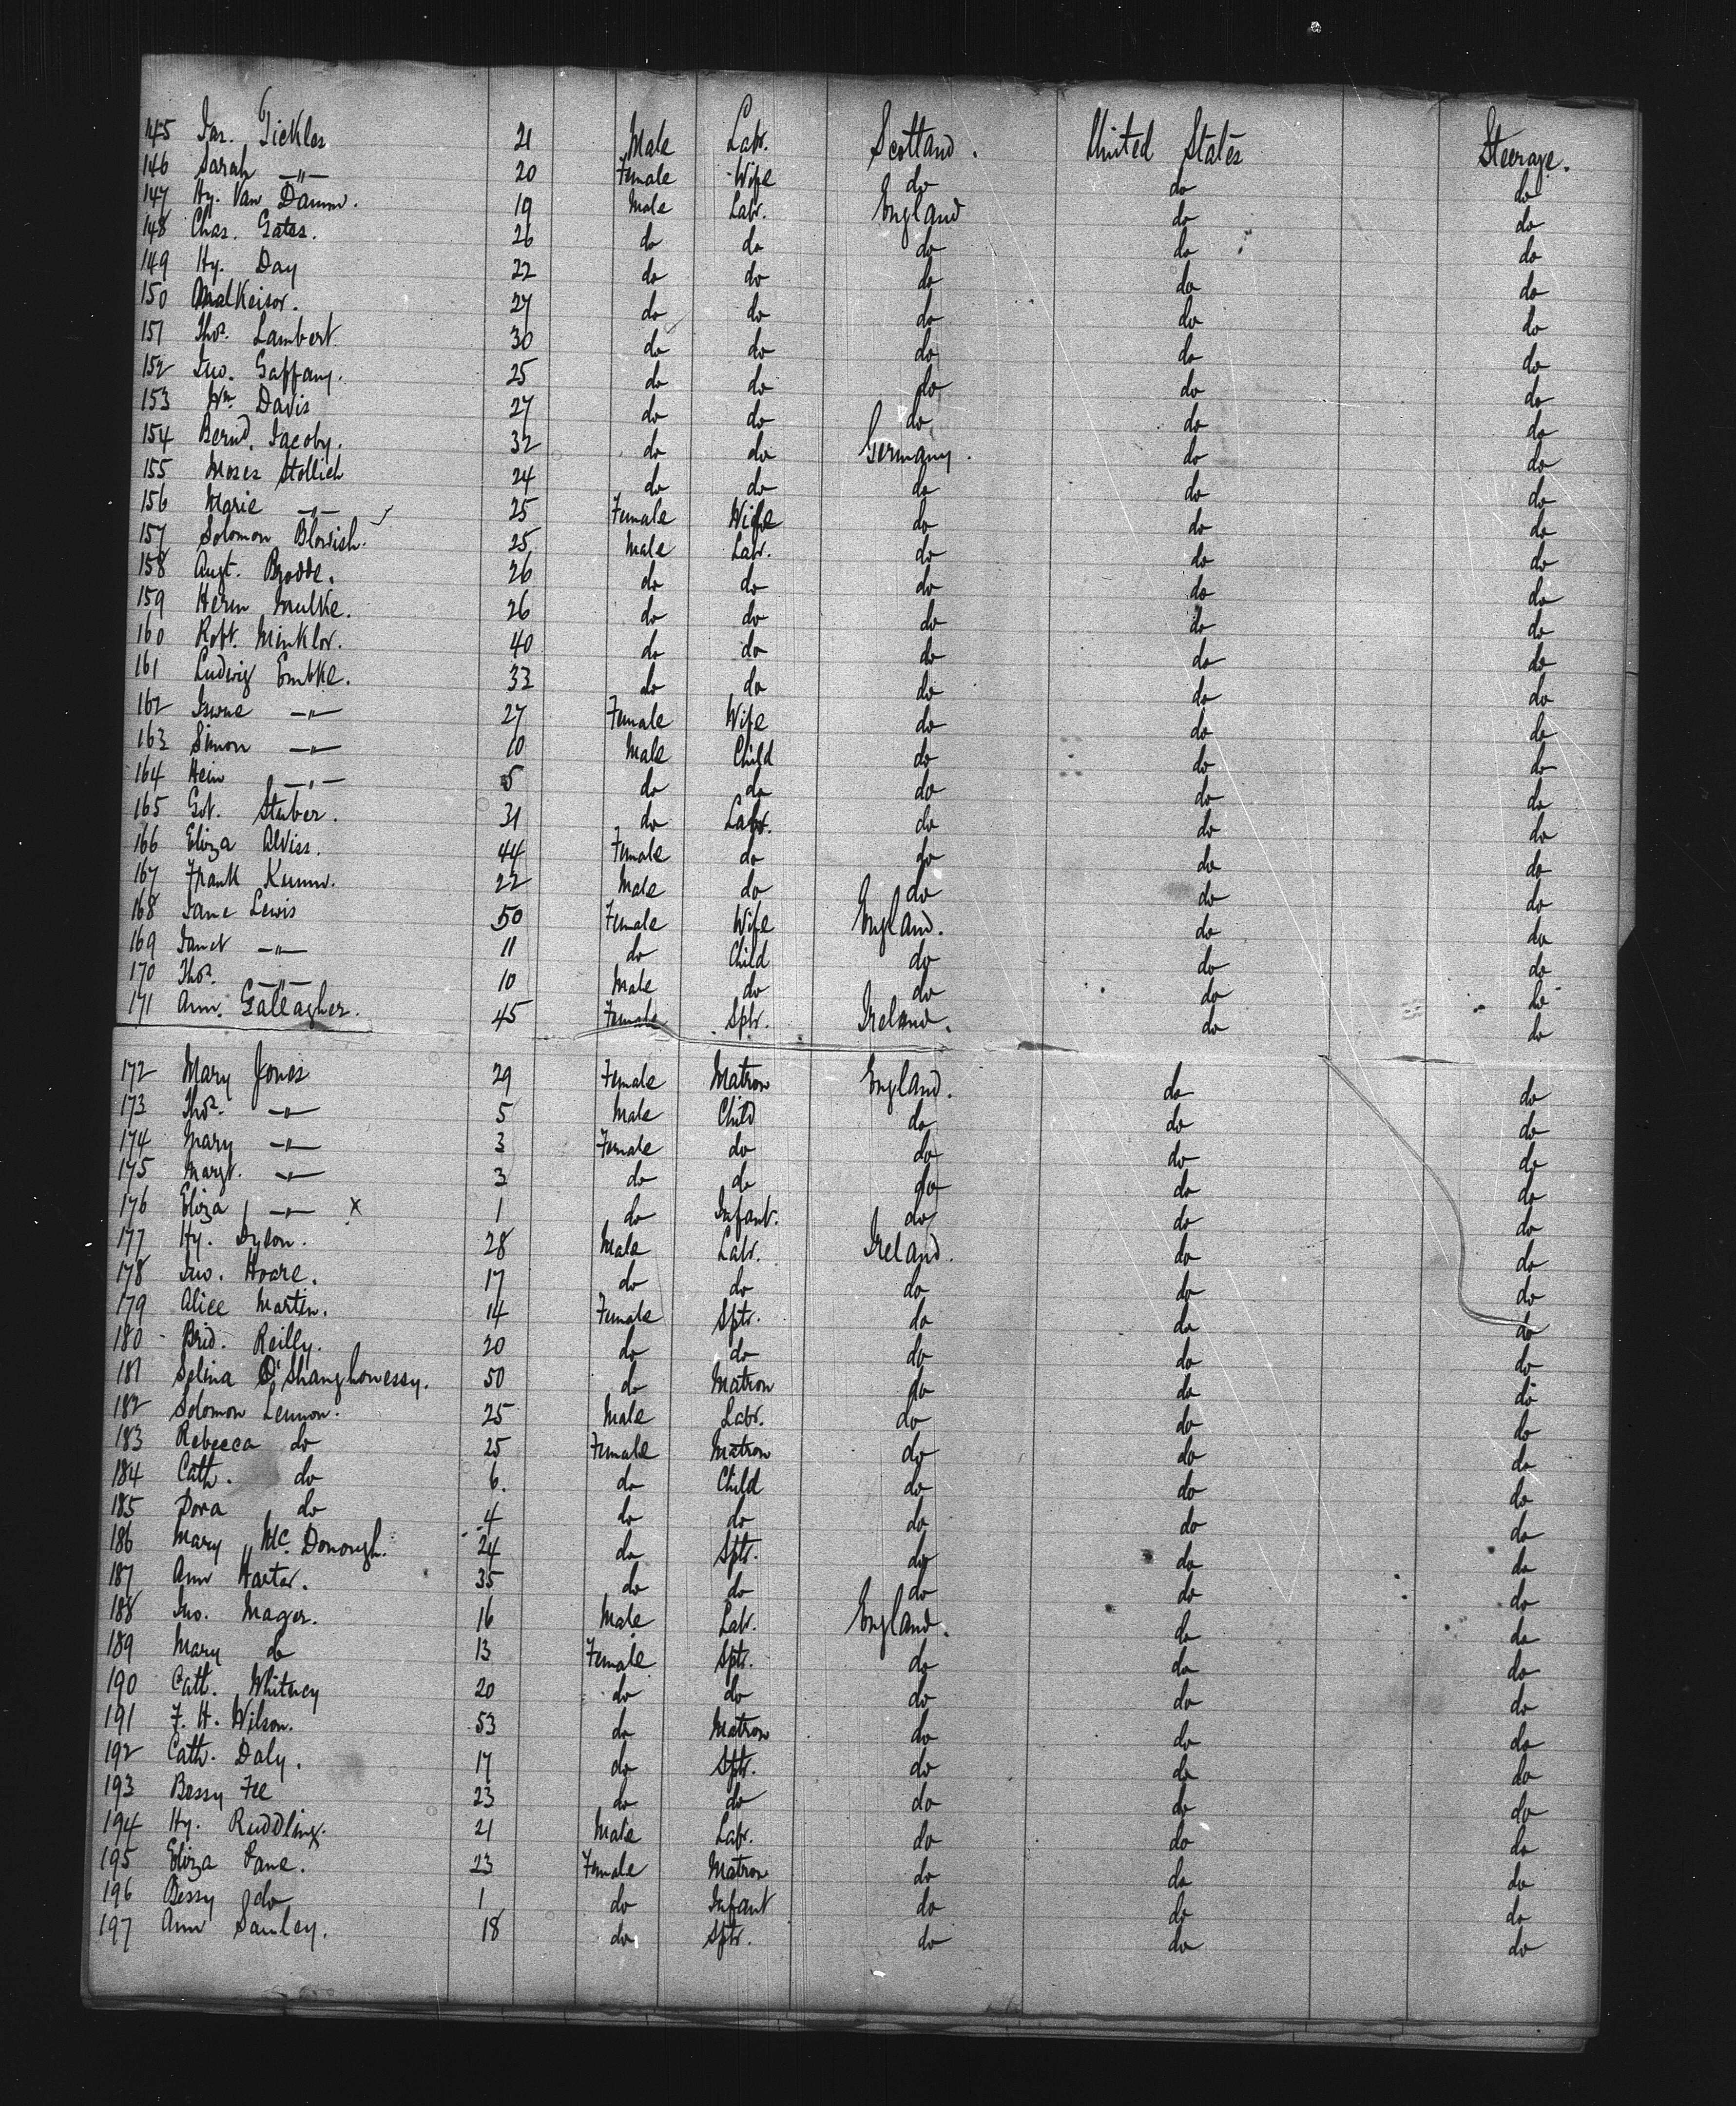 145 Jas. Tickles 21 Male Labr. Scotland. United States Steerage.
146 Sarah —"— 20 Female Wife do do do
147 Hy. Van Damm. 19 Male Labr. England do do
148 Chas. Gates. 26 do do do do do
149 Hy. Day 22 do do do do do
150 27 do do do do do
151 Thos. Lambert 30 do do do do do
152 Jno. Gaffany. 25 do do do do do
153 Wm. Davis 27 do do do do do
154 Bernd. Jacoby. 32 do do Germany. do do
155 Moses Stollich 24 do do do do do
156 Marie —"— 25 Female Wife do do do
157 Solomon Blowish. 25 Male Labr. do do do
158 Augt. Brodde. 26 do do do do do
159 Herm Mulke. 26 do do do do do
160 Robt. Minklor. 40 do do do do do
161 Ludwig Emtke. 33 do do do do do
162 —"— 27 Female Wife do do do
163 Simon —"— 10 Male Child do do do
164 Hein —"— 5 do do do do do
165 Got. Stuber. 31 do Labr. do do do
166 Eliza Alviss. 44 Female do do do do
167 Frank Kumm. 22 Male do do do do
168 Jane Lewis 50 Female Wife England. do do
169 Janet —"— 11 do Child do do do
170 Thos. —"— 10 Male do do do do
171 Ann. Gallagher. 45 Female Sptr. Ireland. do do
172 Mary Jones 29 Female Matron England. do do
173 Thos. —"— 5 Male Child do do do
174 Mary —"— 3 Female do do do do
175 Margt. —"— 3 do do do do do
176 Eliza —"— x 1 do Infant. do do do
177 Hy. Dylon. 28 Male Labr. Ireland. do do
178 Jno. Hoare. 17 do do do do do
179 Alice Martin. 14 Female Sptr. do do do
180 Brid. Reilly. 20 do do do do do
181 Selina O'Shanghonessy. 50 do Matron do do do
182 Solomon Lennon. 25 Male Labr. do do do
183 Rebecca do 25 Female Matron do do do
184 Cath. do 6. do Child do do do
185 Dora do 4 do do do do do
186 Mary Mc. Donongh. 24 do Sptr. do do do
187 Ann Harter. 35 do do do do do
188 Jno. Mager. 16 Male Labr. England. do do
189 Mary do 13 Female Sptr. do do do
190 Cath. Whitney 20 do do do do do
191 F. H. Wilson. 53 do Matron do do do
192 Cath. Daly. 17 do Sptr. do do do
193 Bessy Fee 23 do do do do do
194 Hy. Ruddling. 21 Male Labr. do do do
195 Eliza Pane. 23 Female Matron do do do
196 Bessy do 1 do Infant do do do
197 Ann 18 do Sptr. do do do